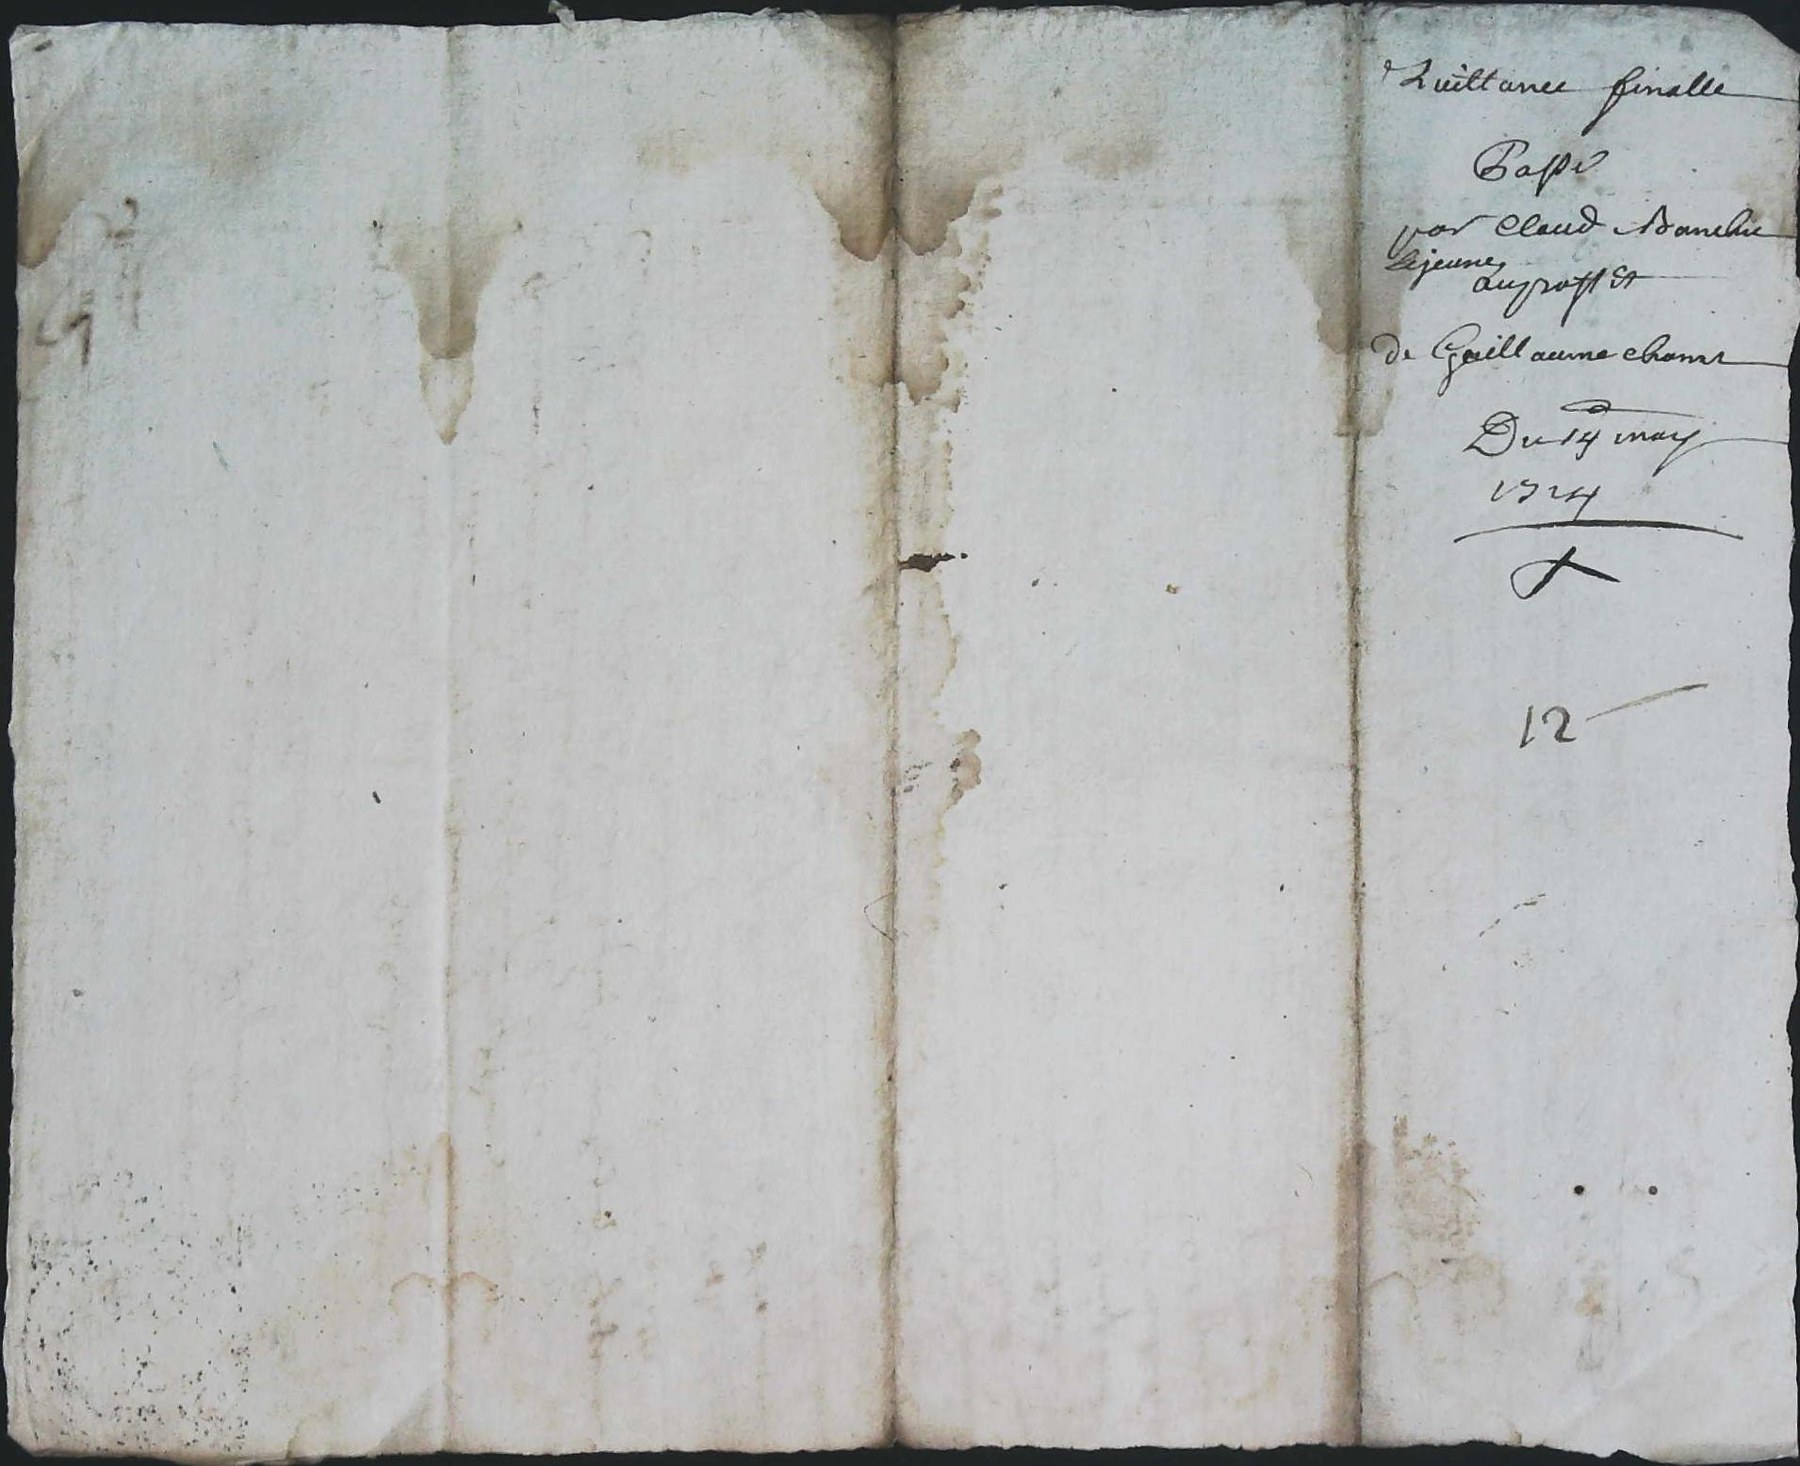 Quittance finalle
Passé
par Claud Banchu
Lejeune
au proffit
de Guillaume chomt
Du 14 may
1724
12